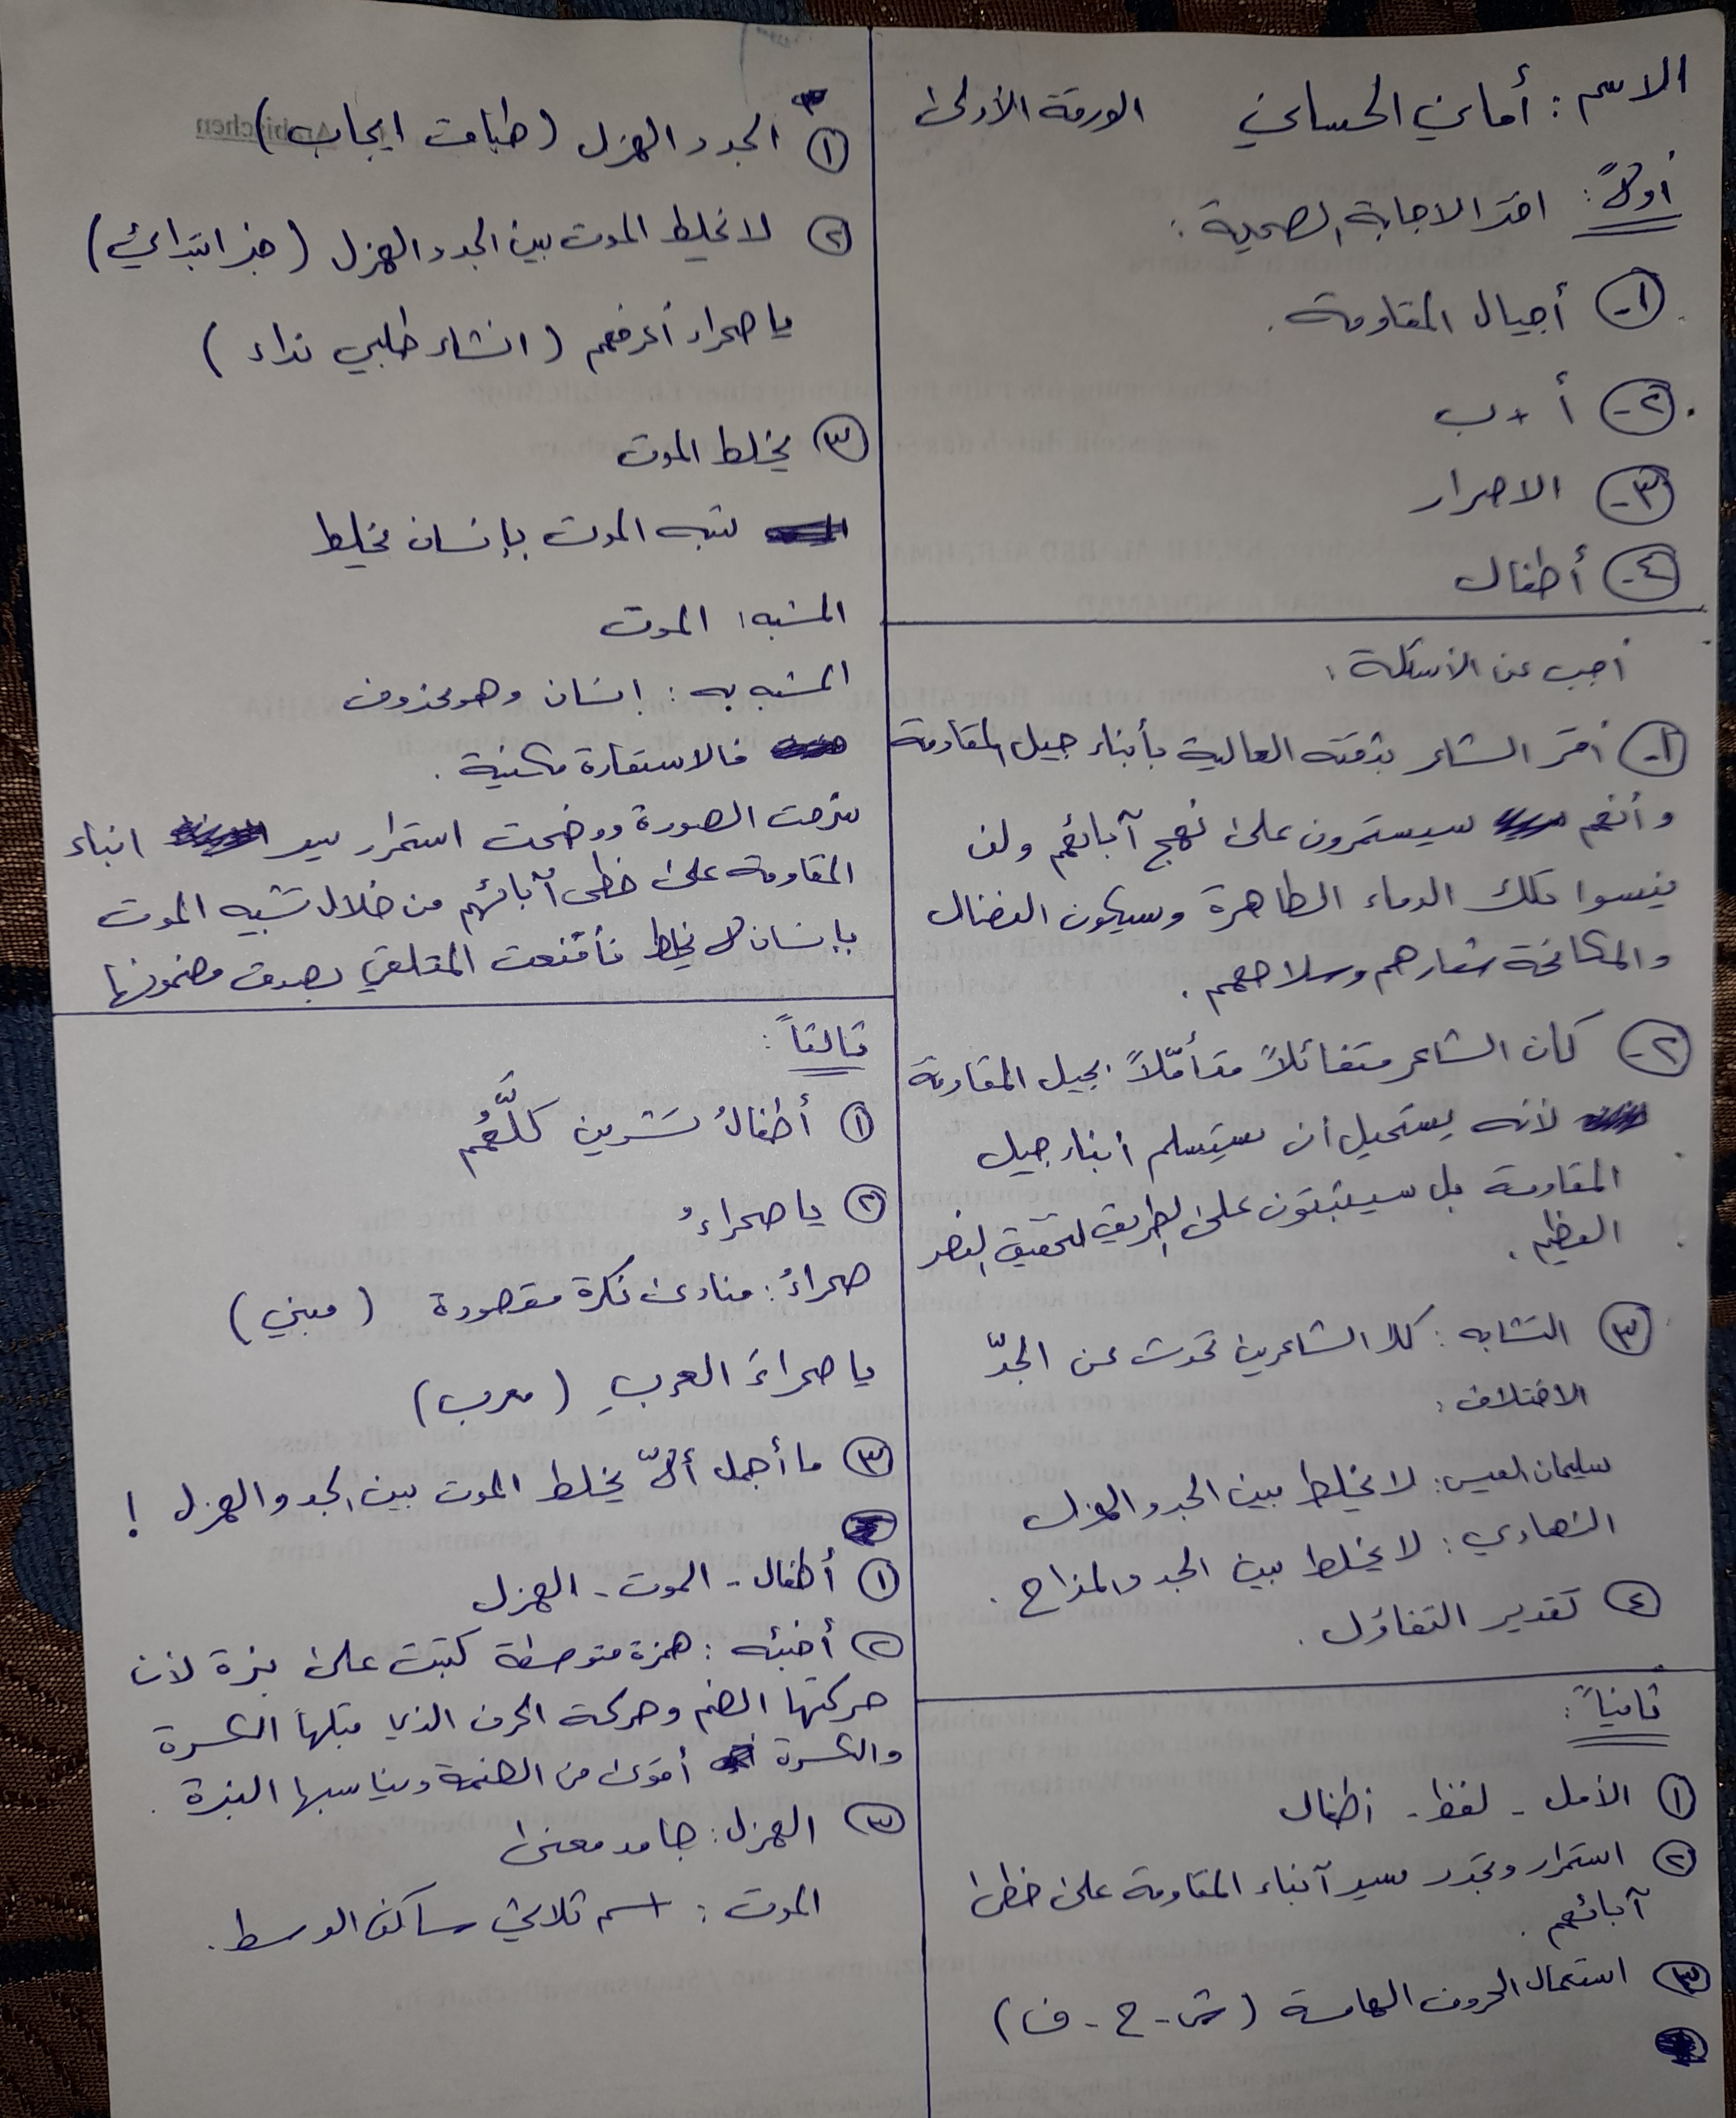 الاسم : أماني الحساني     الورقة الأولى
أولاً : اختر الاجابة الصحيحة :
١- أجيال المقاومة .
٢- أ + ب
٣- الاصرار
٤- أطفال
أجب عن الأسئلة :
١- أقر الشاعر بثقته العالية بأبناء جيل المقاومة
وأنهم سيستمرون على نهج آبائهم ولن
ينسوا تلك الدماء الطاهرة وسيكون النضال
والمكافحة شعارهم وسلاحهم .
٢- كان الشاعر متفائلاً متأمّلاً بجيل المقاومة
لأنه يستحيل أن يستسلم أبناء جيل
المقاومة بل سيثبتون على الطريق لتحقيق النصر
العظيم .
٣ التشابه : كلا الشاعرين تحدث عن الجدّ
الاختلاف :
سليمان العيسى : لا يخلط بين الجد والهزل
النهاري : لا يخلط بين الجد والمزاح .
٤ تقدير التفاؤل .
ثانياً :
١ الأمل - لفظ - أطفال
٢ استمرار وتجدد سير أبناء المقاومة على خطى
آبائهم .
٣ استعمال الحروف الهامسة ( ش - ح - ف )
١ الجد والهزل ( طباق ايجاب )
٢ لا يخلط الموت بين الجد والهزل ( خبر ابتدائي )
يا صحراء أعرفهم ( انشاء طلبي نداء )
٣ يخلط الموت
شبه الموت بإنسان يخلط
المشبه : الموت
المشبه به : إنسان وهو محذوف
فالاستعارة مكنية .
شرحت الصورة ووضحت استمرار سير ابناء
المقاومة على خطى آبائهم من خلال تشبيه الموت
بإنسان لا يخلط فأقنعت المتلقي بصدق مضمونها
ثالثاً :
١ أطفالُ تشرين كلُّهُم
٢ يا صحراءُ
صحراءُ : منادى نكرة مقصودة ( مبني )
يا صحراءَ العربِ ( معرب )
٣ ما أجمل ألّا يخلط الموت بين الجد والهزل !
١ أطفال - الموت - الهزل
٢ أخبئه : همزة متوسطة كتبت على نبرة لأن
حركتها الضم وحركة الحرف الذي قبلها الكسرة
والكسرة أقوى من الضمة ويناسبها النبرة .
٣ الهزل : جامد معنى
الموت : اسم ثلاثي ساكن الوسط .